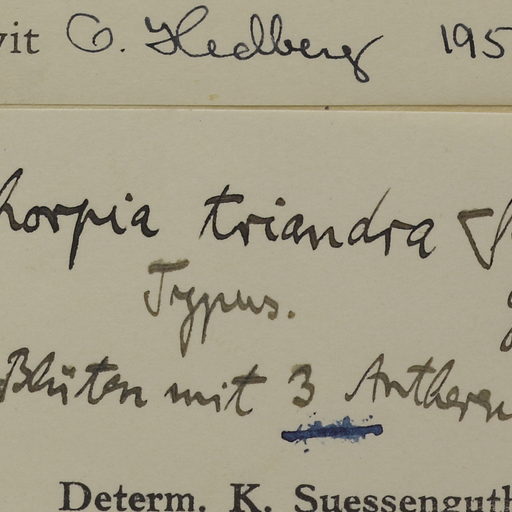 vit O. Hedberg 195
horpia triandra
Typus.
Blüten mit 3 Antheren
Determ. K. Suessenguth